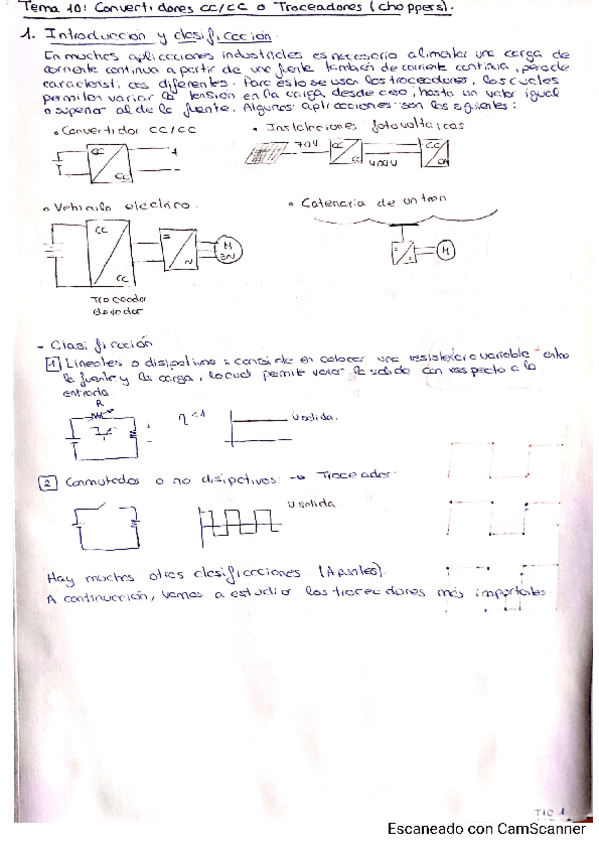 Tema 10: Convertidores CC/CC o Troceadores (choppers).
1. Introducción y clasificación.
En muchas aplicaciones industriales es necesario alimentar una carga de
corriente continua a partir de una fuente también de corriente continua, pero de
características diferentes. Para esto se usan los troceadores, los cuales
permiten variar la tensión en la carga, desde cero, hasta un valor igual
o superior al de la fuente. Algunas aplicaciones son las siguientes:
• Convertidor CC/CC
• Instalaciones fotovoltaicas
CC
CC
+
-
70V
CC
CC
400V
CC
CA
• Vehículo eléctrico.
• Catenaria de un tren
CC
CC
=
~
M
3~
M
Troceador
elevador
- Clasificación
1 Lineales o disipativos: consiste en colocar una resistencia variable entre
la fuente y la carga, lo cual permite variar la salida con respecto a la
entrada.
R
η<1
U salida.
2 Conmutados o no disipativos: → Troceador.
U salida
Hay muchas otras clasificaciones (Apuntes).
A continuación, vamos a estudiar los troceadores más importantes.
T10 1
Escaneado con CamScanner